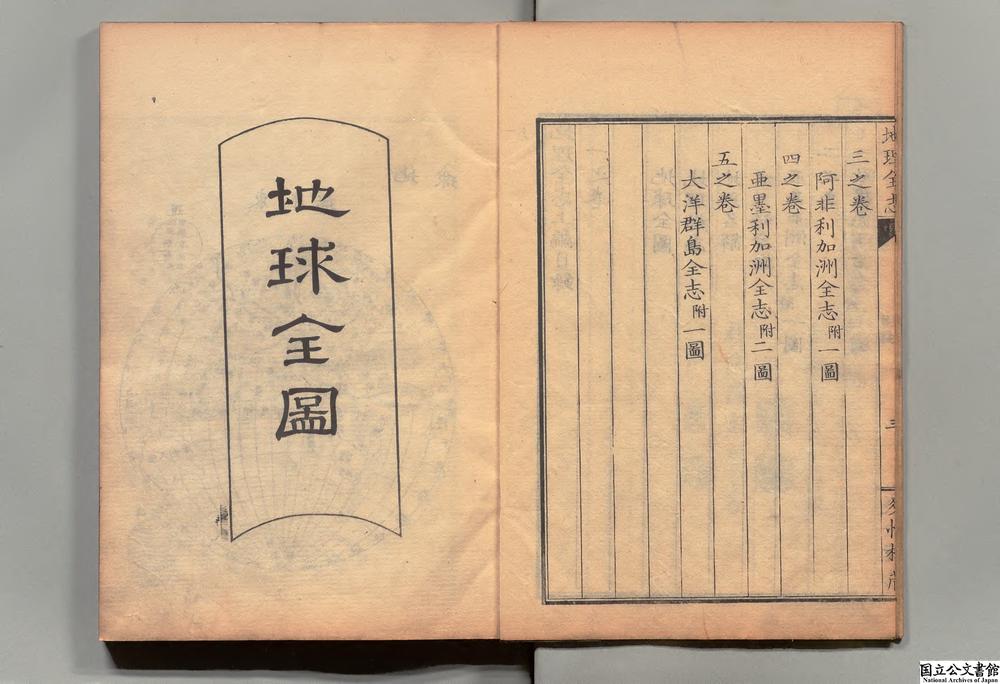 地理全志
三之卷
阿非利加洲全志附一圖
四之卷
亜墨利加洲全志附二圖
五之卷
大洋群島全志附一圖
三
地球全圖
国立公文書館
National Archives of Japan